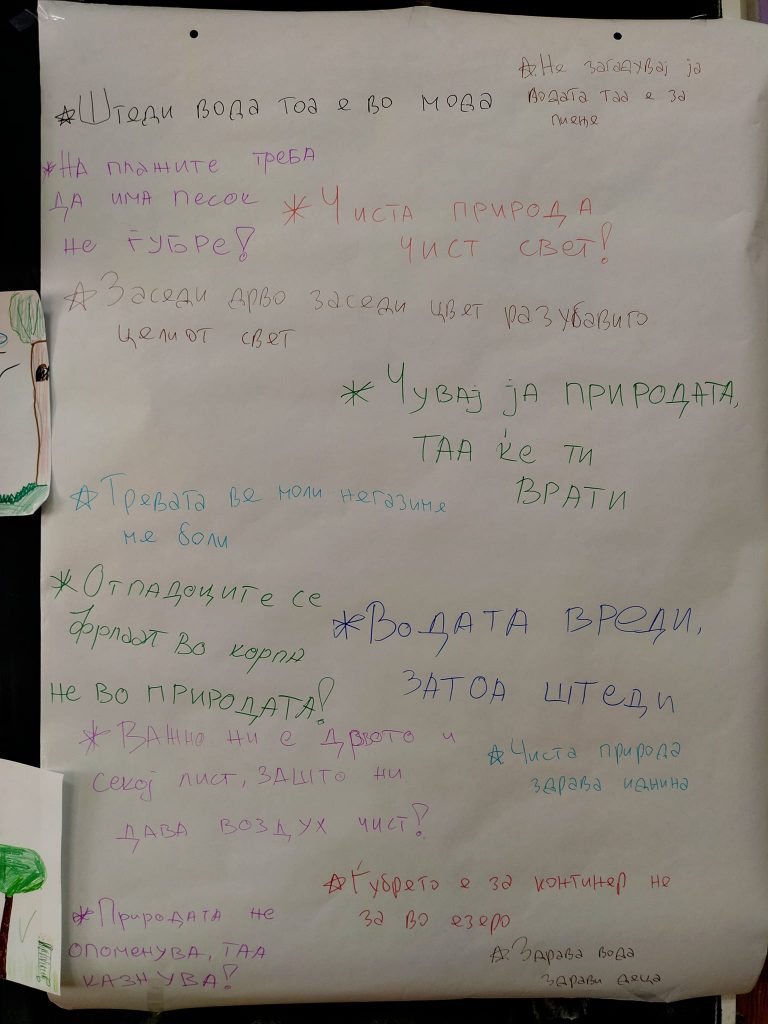 *Штеди вода тоа е во мода
*Не загадувај ја
водата таа е за
пиење
*На плажите треба
да има песок
не ѓубре!
*Чиста природа
чист свет!
*Заседи дрво заседи цвет разубавиго
целиот свет
*Чувај ја природата,
таа ќе ти
врати
*Тревата ве моли негазиме
ме боли
*Отпадоците се
фрлаат во корпа
не во природата!
*Водата вреди,
затоа штеди
*Важно ни е дрвото и
секој лист, зашто ни
дава воздух чист!
*Чиста природа
здрава иднина
*Ѓубрето е за континер не
за во езеро
*Природата не
опоменува, таа
казнува!
*Здрава вода
здрави деца